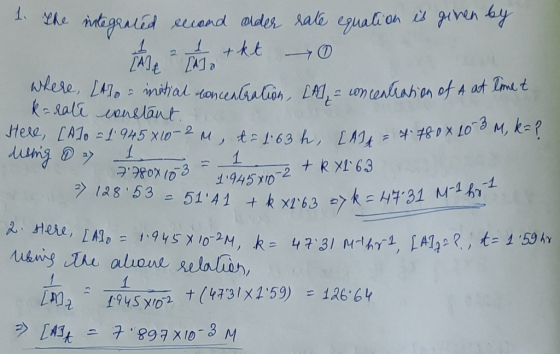 1. The integrated second order rate equation is given by
1/[A]t = 1/[A]0 + kt → ①
where, [A]0 = initial concentration, [A]t = concentration of A at time t
k = rate constant.
Here, [A]0 = 1.945×10⁻² M, t = 1.63 h, [A]t = 7.780×10⁻³ M, k=?
Using ① ⇒ 1/7.780×10⁻³ = 1/1.945×10⁻² + k×1.63
⇒ 128.53 = 51.41 + k×1.63 ⇒ k = 47.31 M⁻¹hr⁻¹
2. Here, [A]0 = 1.945×10⁻²M, k = 47.31 M⁻¹hr⁻¹, [A]t=?, t = 1.59hr
Using the above relation,
1/[A]t = 1/1.945×10⁻² + (47.31×1.59) = 126.64
⇒ [A]t = 7.897×10⁻³ M